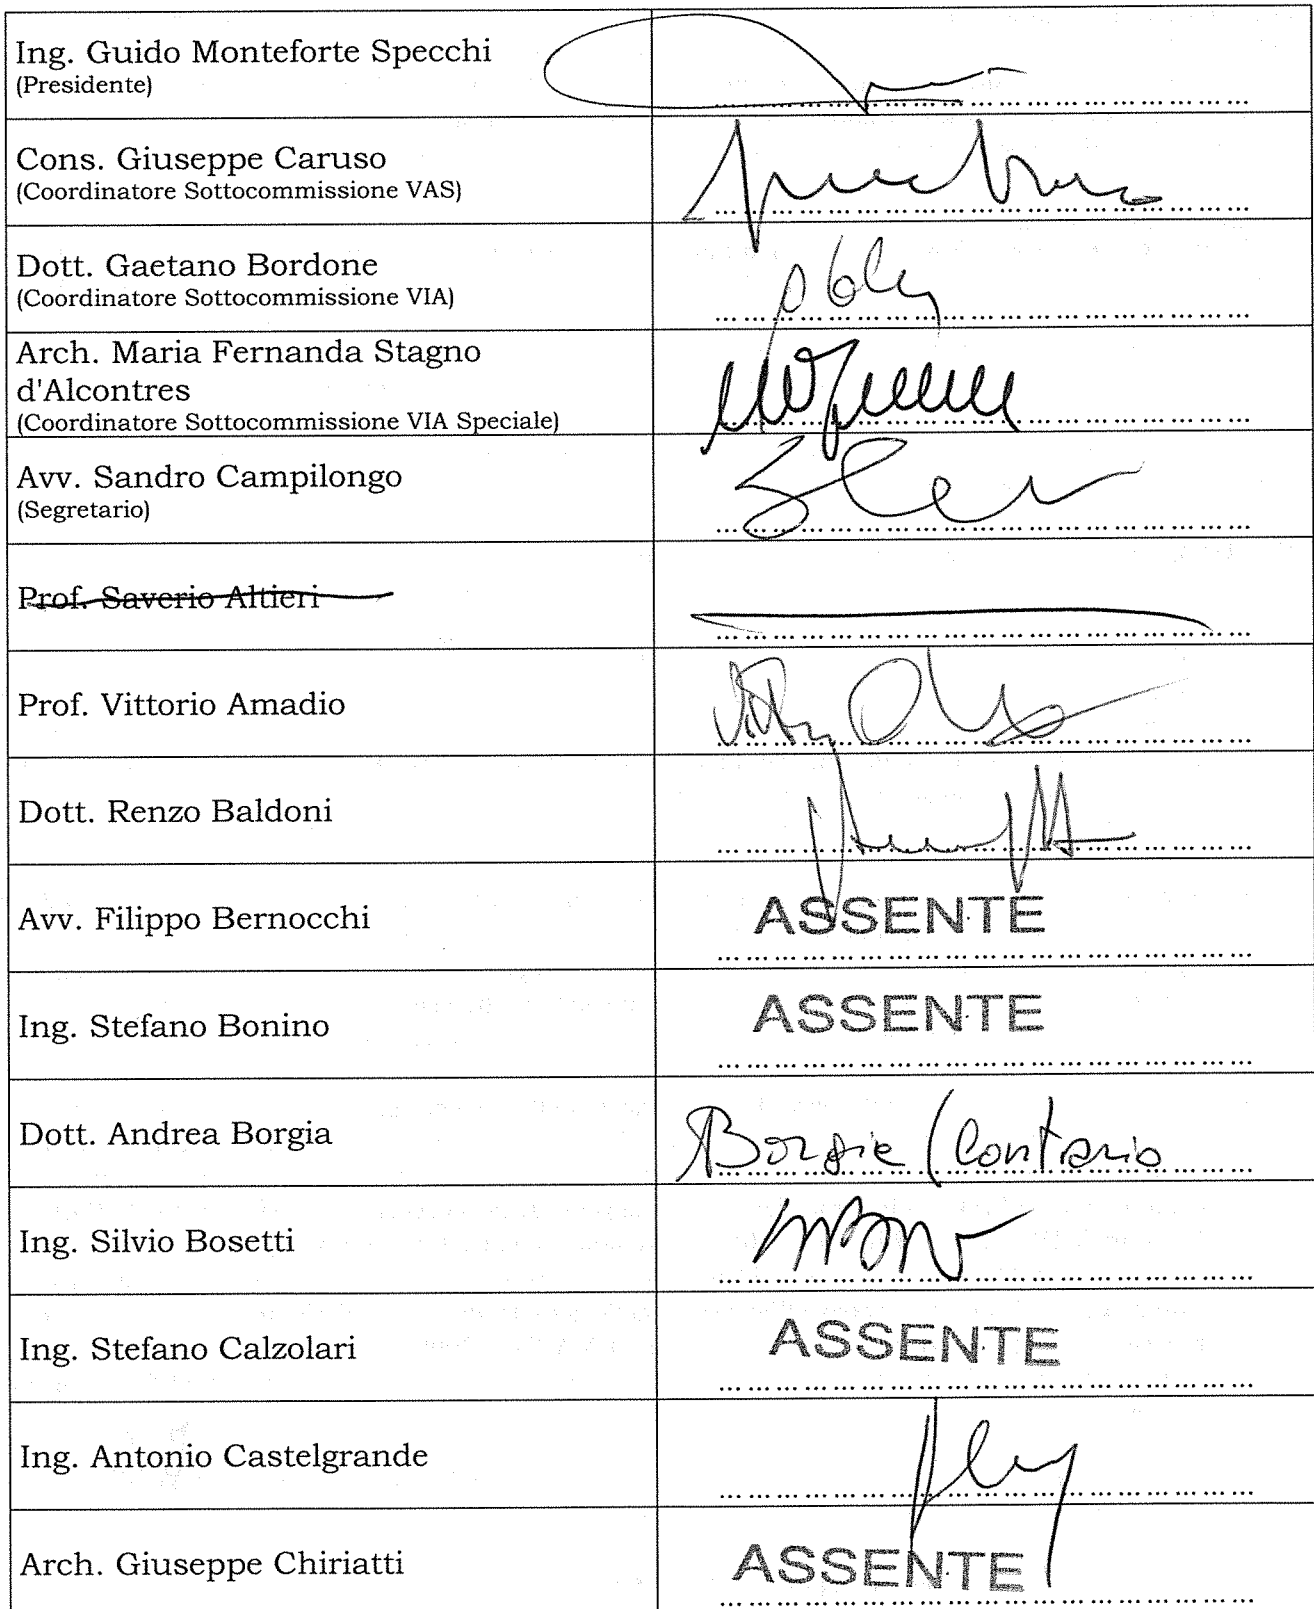 Ing. Guido Monteforte Specchi
(Presidente)
Cons. Giuseppe Caruso
(Coordinatore Sottocommissione VAS)
Dott. Gaetano Bordone
(Coordinatore Sottocommissione VIA)
Arch. Maria Fernanda Stagno
d'Alcontres
(Coordinatore Sottocommissione VIA Speciale)
Avv. Sandro Campilongo
(Segretario)
Prof. Saverio Altieri
Prof. Vittorio Amadio
Dott. Renzo Baldoni
Avv. Filippo Bernocchi
ASSENTE
Ing. Stefano Bonino
ASSENTE
Dott. Andrea Borgia
Borgia (Contrario
Ing. Silvio Bosetti
Ing. Stefano Calzolari
ASSENTE
Ing. Antonio Castelgrande
Arch. Giuseppe Chiriatti
ASSENTE